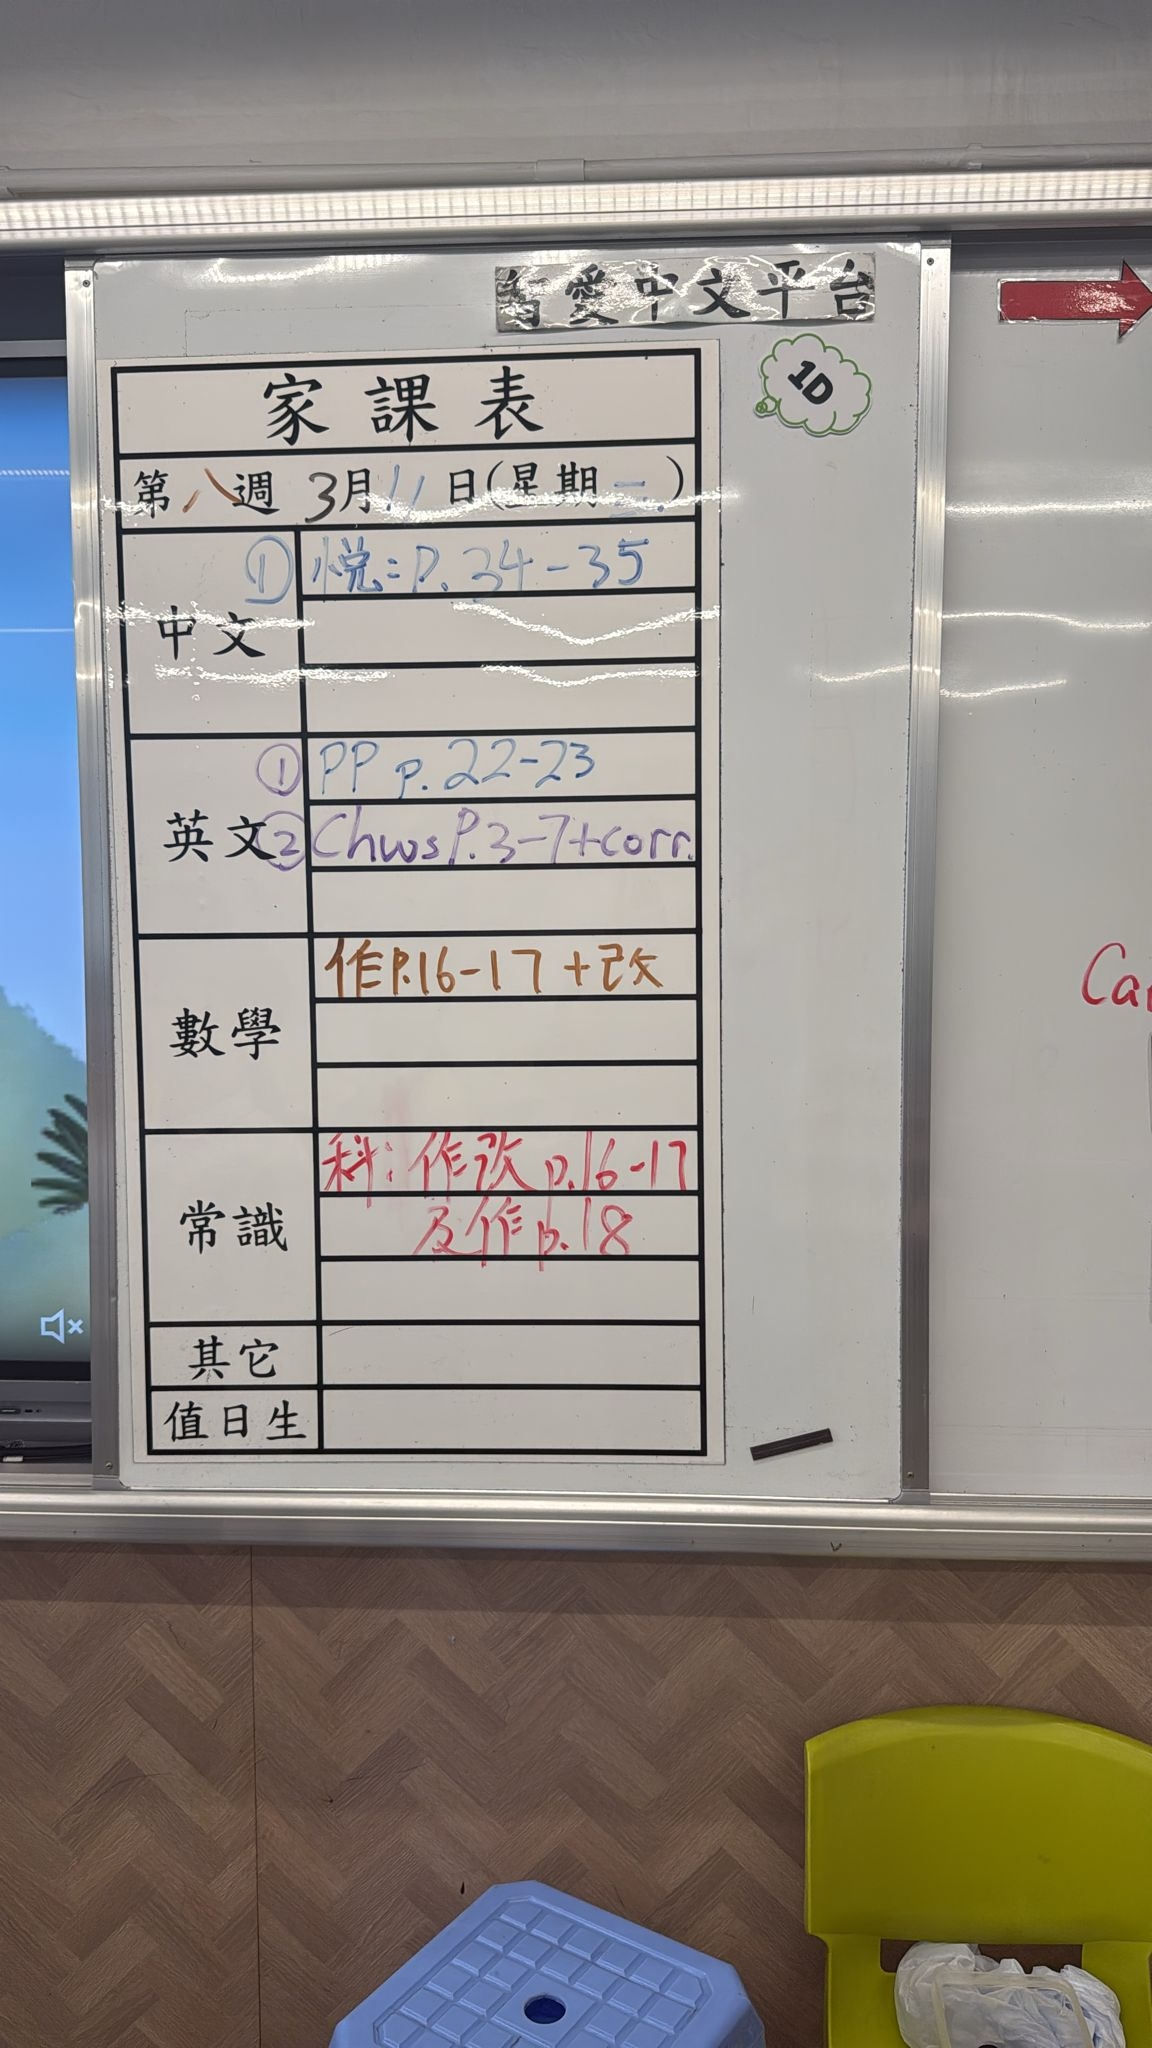 有愛中文平台
1D
家課表
第八週 3月11日(星期二)
中文
① 悅:P.34-35
英文
① PP p.22-23
② Chws P.3-7+corr.
數學
作P.16-17+改
常識
科:作改p.16-17
及作p.18
其它
值日生
Ca